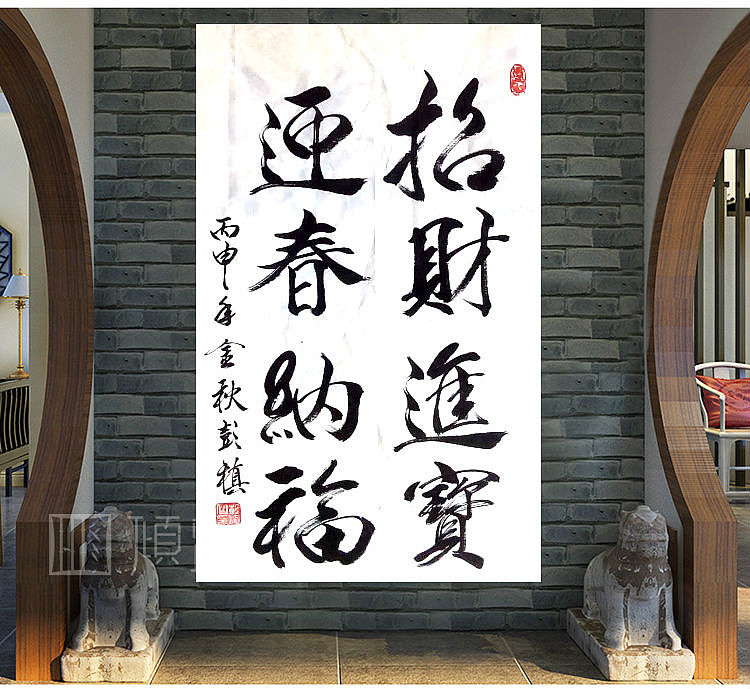 招財進寶
迎春納福
丙申年金秋彭
順